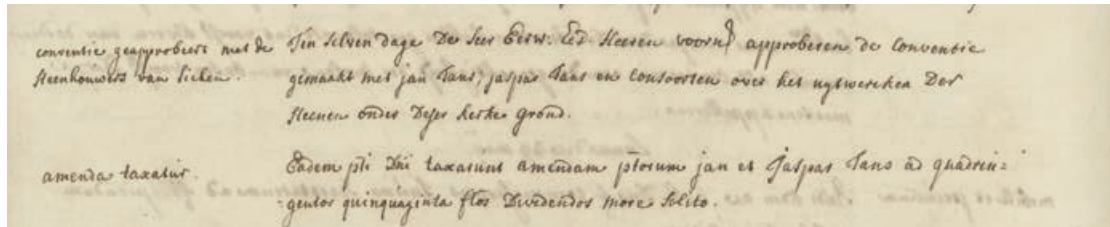 conventie geapprobeert met de
steenhouwers van sichen.
Ten selven dage de seer Eerw. Ed Heeren voorn. approberen de conventie
gemaakt met jan Tans, jaspar Tans en consoorten over het uytwercken der
steenen onder deser kerke grond.
amenda taxatur.
Eadem pti Dni taxarunt amendam ptorum jan et Jaspar Tans ad quadrin:
:gentos quinquaginta flos dividendos more solito.